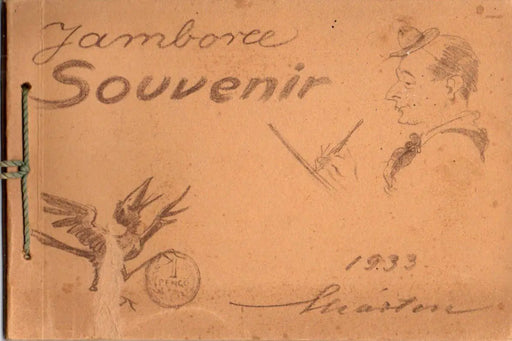 Jamboree
Souvenir
1
PENGŐ
1933
Márton